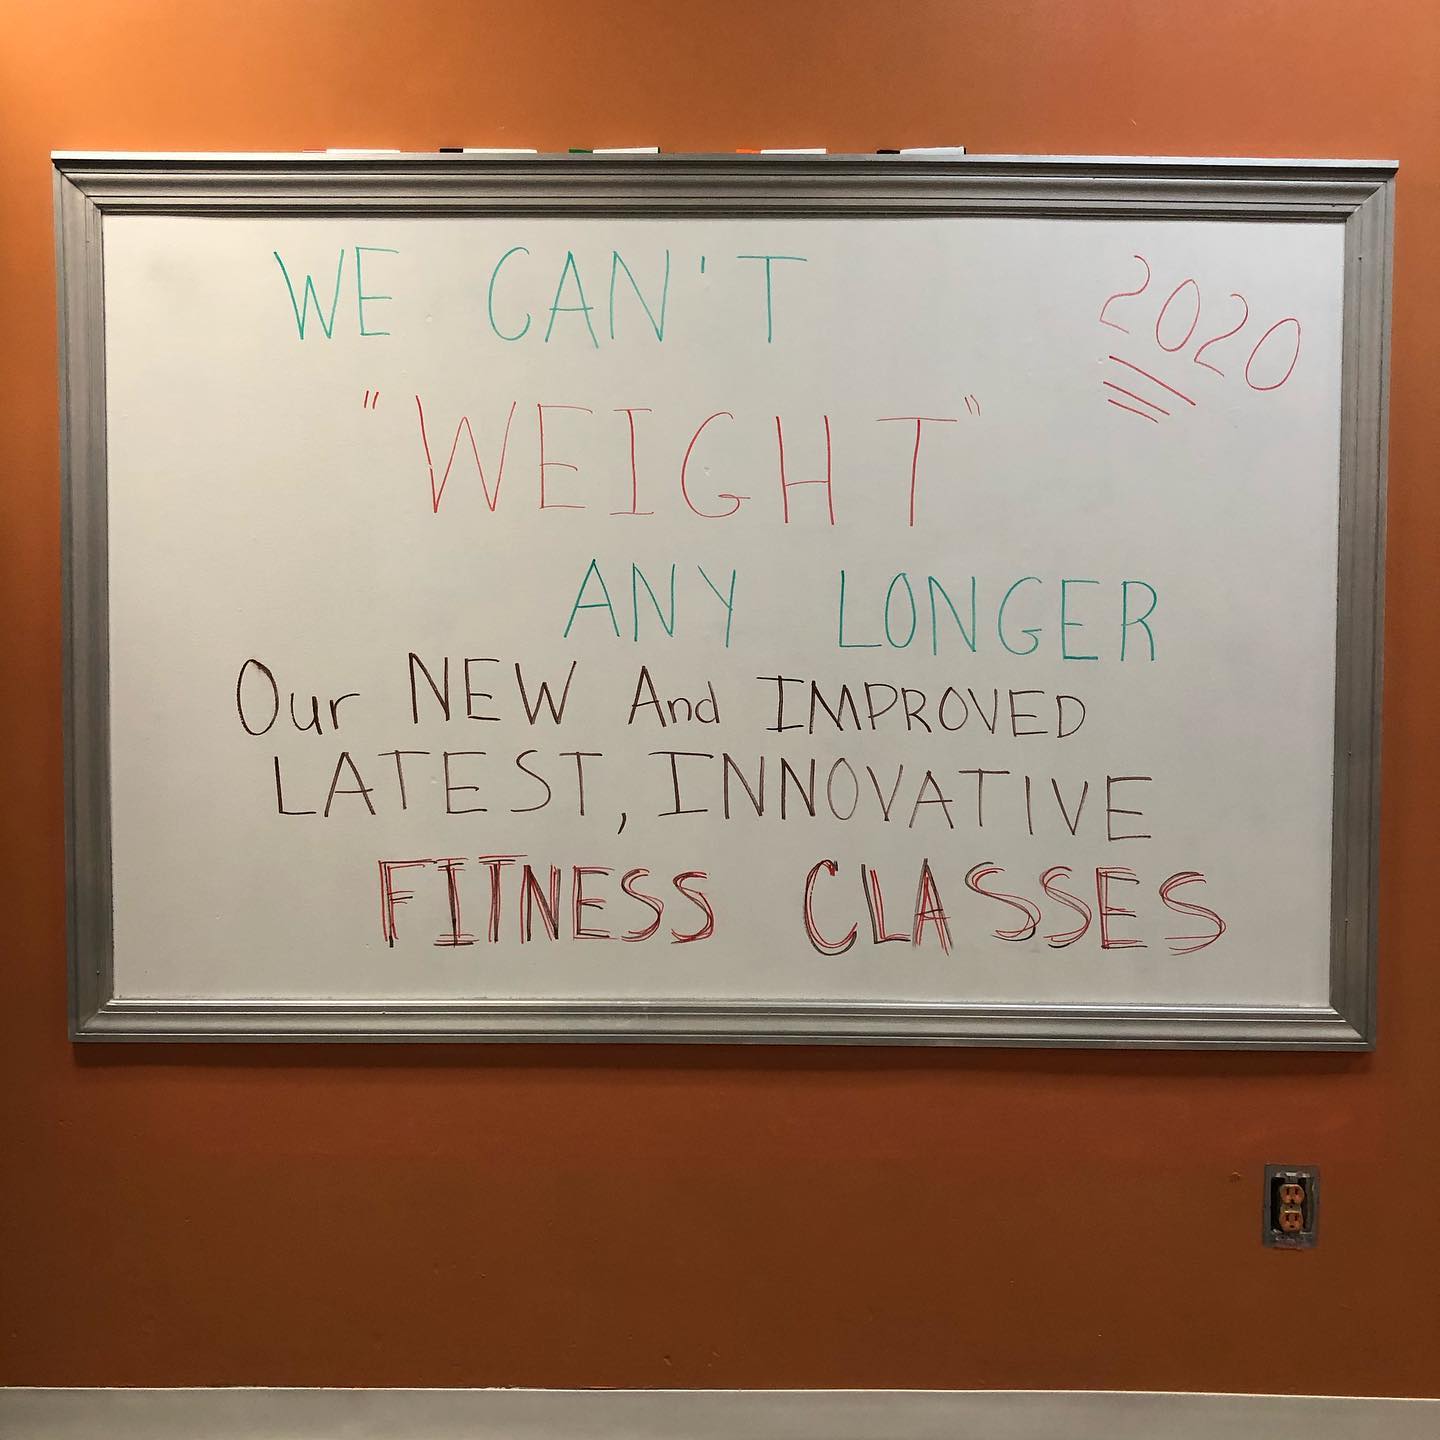 WE CAN'T
2020
"WEIGHT"
ANY LONGER
Our NEW And IMPROVED
LATEST, INNOVATIVE
FITNESS CLASSES